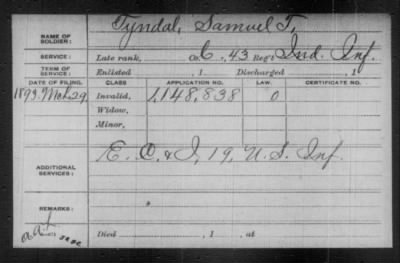 NAME OF SOLDIER: Tyndal, Samuel T.
SERVICE: Late rank, Co. C, 43 Reg't Ind. Inf.
TERM OF SERVICE: Enlisted , 1 Discharged , 1
DATE OF FILING. CLASS. APPLICATION NO. LAW. CERTIFICATE NO.
1893. Mch 29 Invalid, 1,148,838 0
Widow,
Minor,
ADDITIONAL SERVICES: E. C. & I, 19, U. S. Inf.
REMARKS:
Died , 1 , at